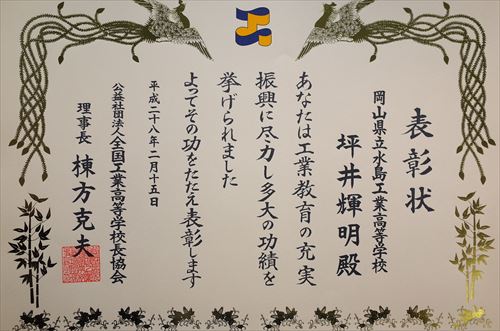 表彰状
岡山県立水島工業高等学校
坪井輝明殿
あなたは工業教育の充実
振興に尽力し多大の功績を
挙げられました
よってその功をたたえ表彰します
平成二十八年二月十五日
公益社団法人全国工業高等学校長協会
理事長 棟方克夫